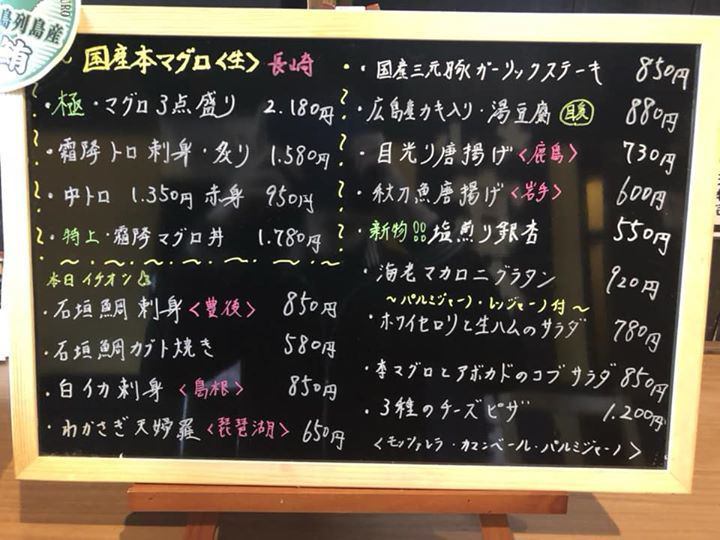 島列島産
鮪
国産本マグロ〈生〉 長崎
・極・マグロ3点盛り 2.180円
・霜降トロ刺身・炙り 1.580円
・中トロ 1.350円 赤身 950円
・特上・霜降マグロ丼 1.780円
本日イチオシ
・石垣鯛刺身〈豊後〉 850円
・石垣鯛カブト焼き 580円
・白イカ刺身〈島根〉 850円
・わかさぎ天婦羅〈琵琶湖〉 650円
・国産三元豚ガーリックステーキ 850円
・広島産カキ入り・湯豆腐 880円
・目光り唐揚げ〈鹿島〉 730円
・秋刀魚唐揚げ〈岩手〉 600円
・新物!!塩煎り銀杏 550円
・海老マカロニグラタン 920円
〜パルミジャーノ・レッジャーノ付〜
・ホワイセロリと生ハムのサラダ 780円
・本マグロとアボカドのコブサラダ 850円
・3種のチーズピザ 1.200円
〈モッツァレラ・カマンベール・パルミジャーノ〉